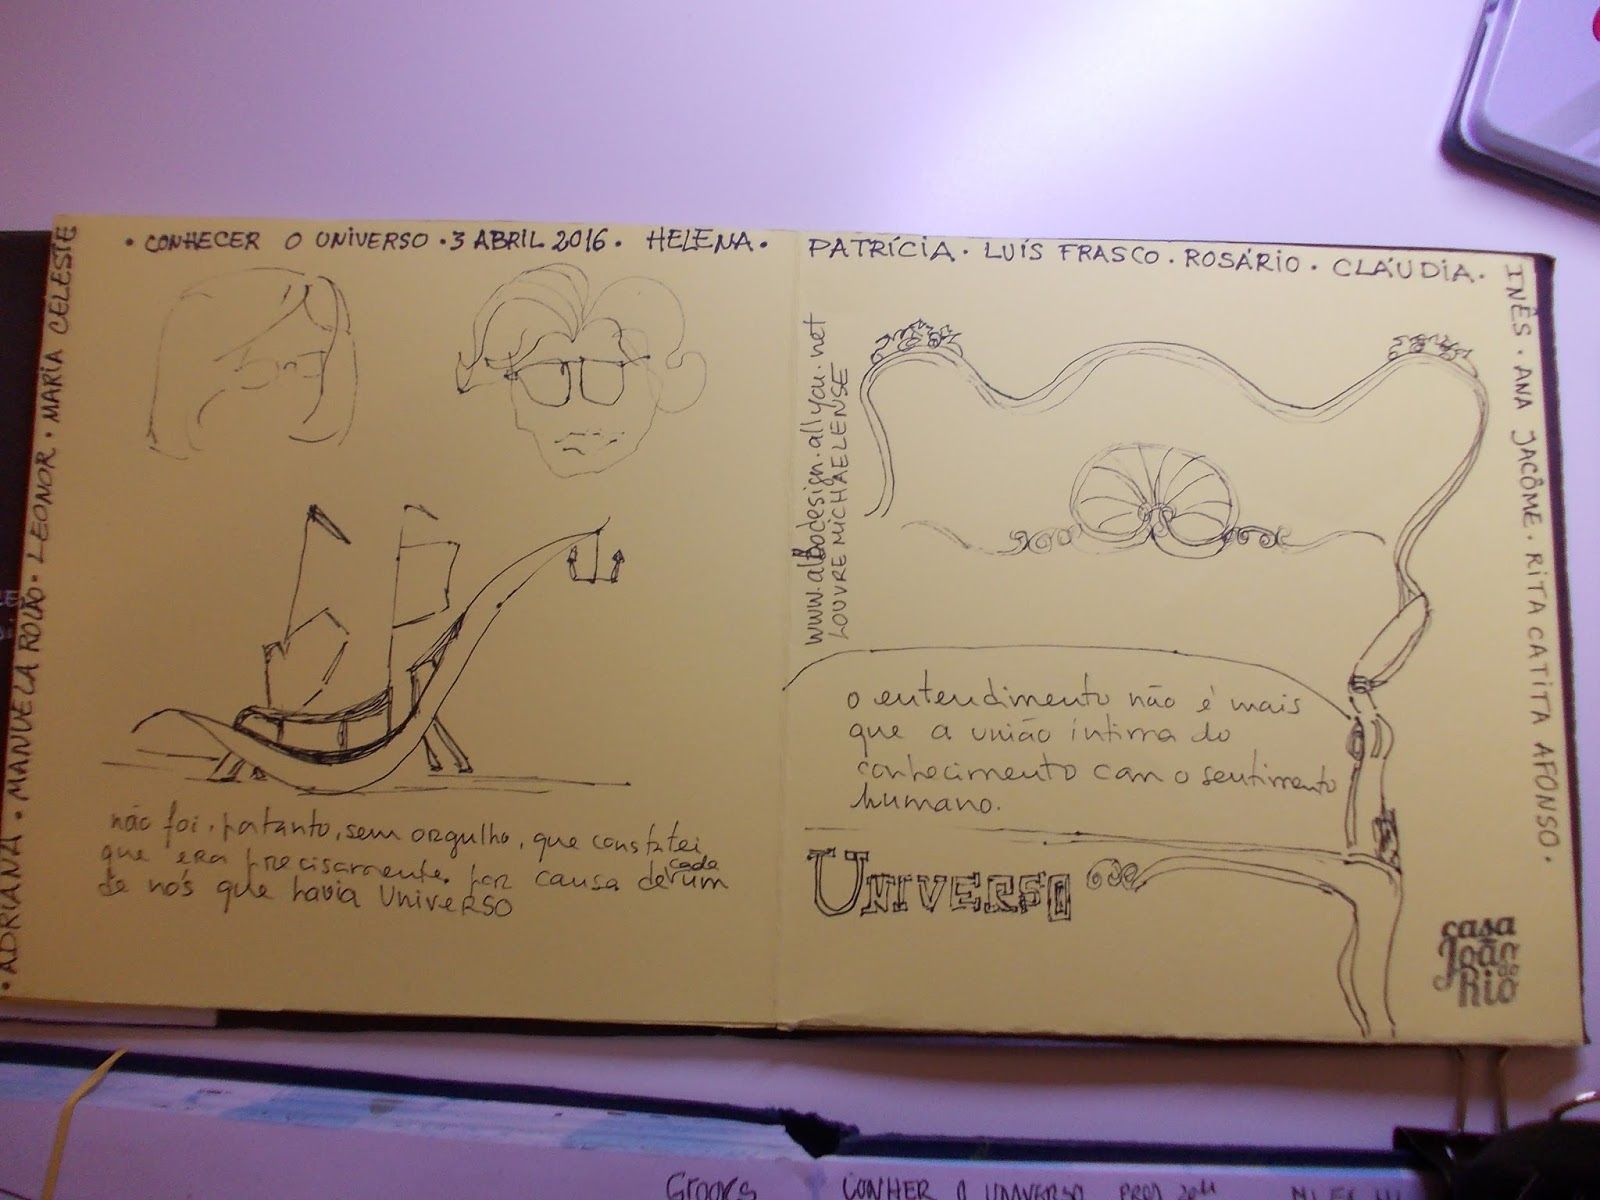 • CONHECER O UNIVERSO • 3 ABRIL 2016 • HELENA •
PATRÍCIA • LUÍS FRASCO • ROSÁRIO • CLÁUDIA •
INÊS • ANA JACÔME • RITA CATITA AFONSO •
• ADRIANA • MANUELA ROLÃO • LEONOR • MARIA CELESTE
não foi, portanto, sem orgulho, que constatei
que era precisamente por causa de cada um
de nós que havia UniveRSO
www.albodesign.allyou.net
LOUVRE MICHAELENSE
o entendimento não é mais
que a união íntima do
conhecimento com o sentimento
humano.
UNIVERSO
casa
João
do
Rio
CONHER O UNIVERSO